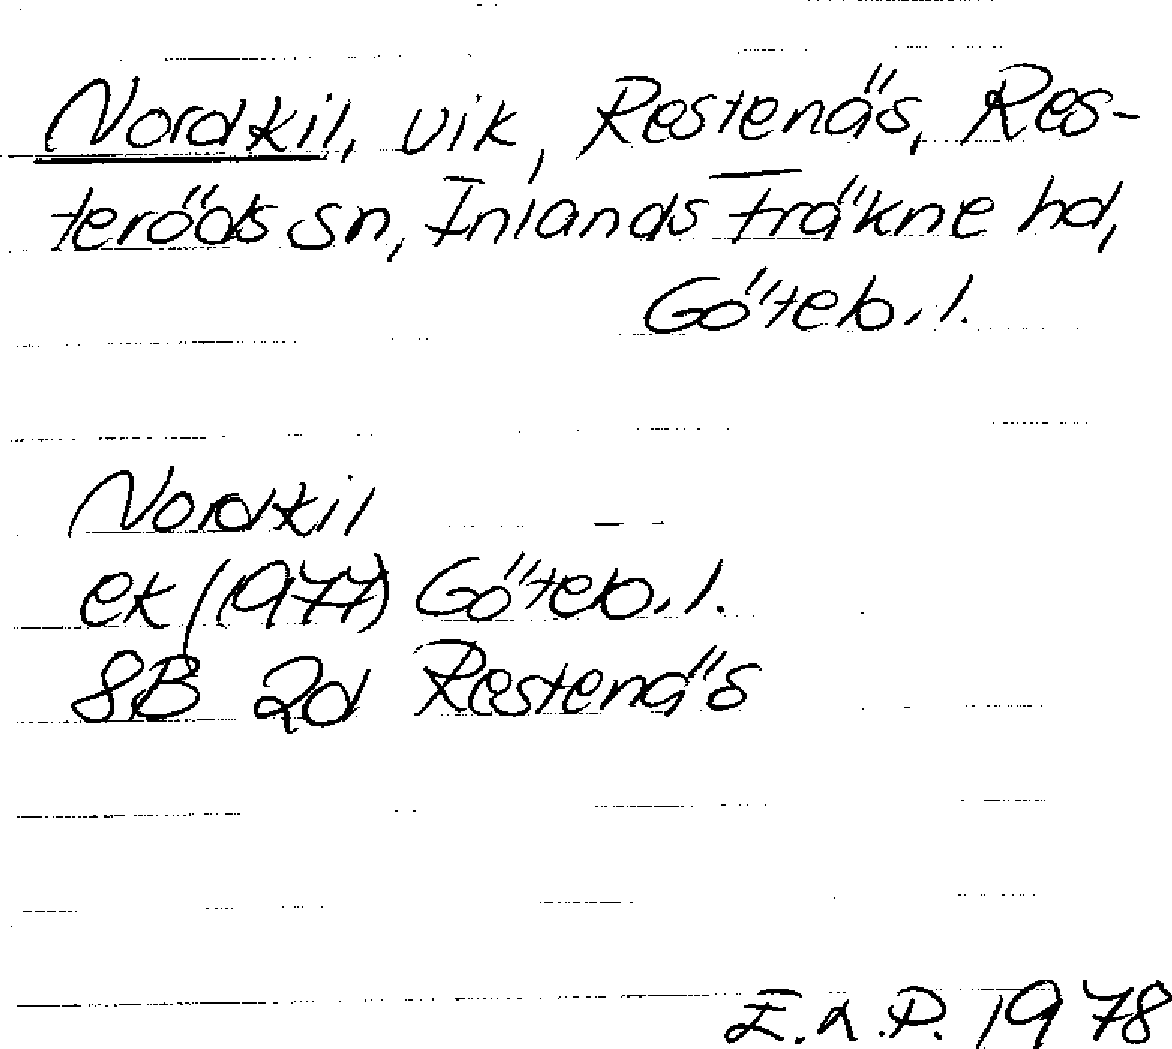 Nordkil, vik, Restenäs, Res-
teröds sn, Inlands Fräkne hd,
Göteb. l.
Nordkil
ek (1977) Göteb. l.
8B 2d Restenäs
E.a.P. 1978